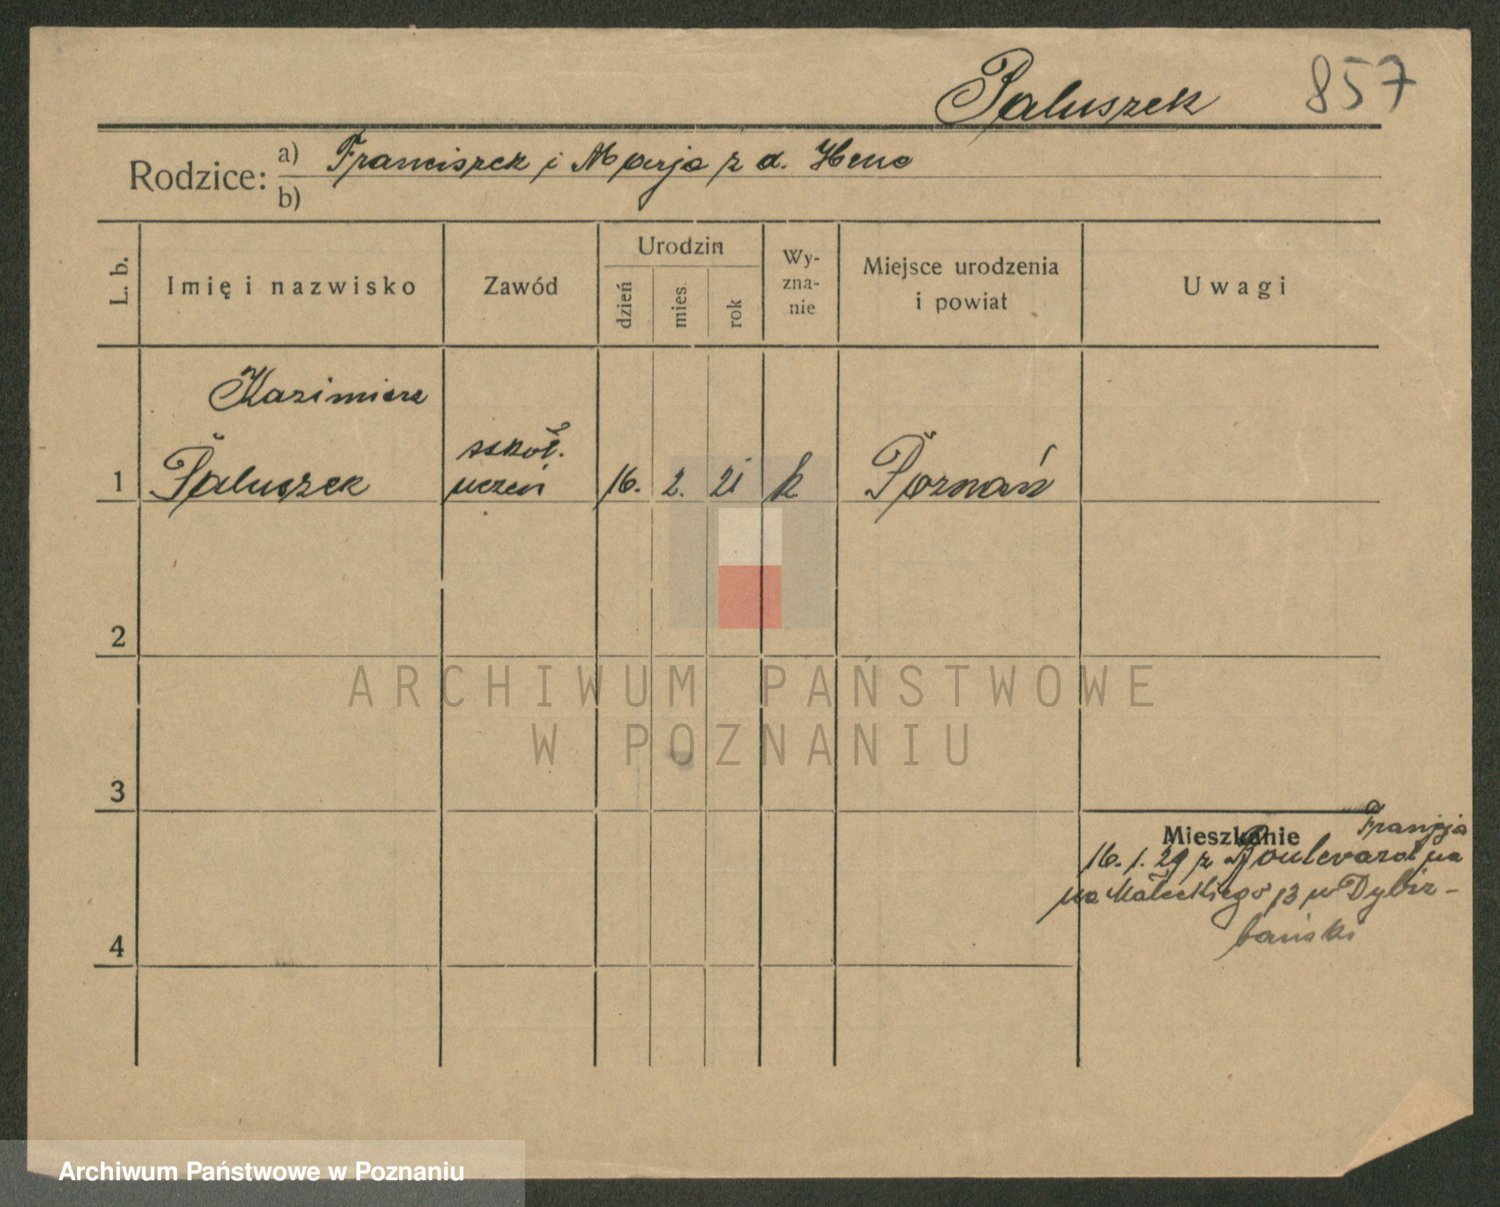 Paluszek 857
Rodzice: a) Franciszek i Marja z d. Heno
b)
L. b. Imię i nazwisko Zawód Urodzin dzień mies. rok Wy-zna-nie Miejsce urodzenia i powiat Uwagi
Kazimierz
szkoł.
1 Paluszek uczeń 16. 2. 21 k Poznań
2
ARCHIWUM PAŃSTWOWE
W POZNANIU
3
Mieszkanie
16. 1. 29 z Boulevard
na Małeckiego 13 u Dybiz-
bański
4
Archiwum Państwowe w Poznaniu